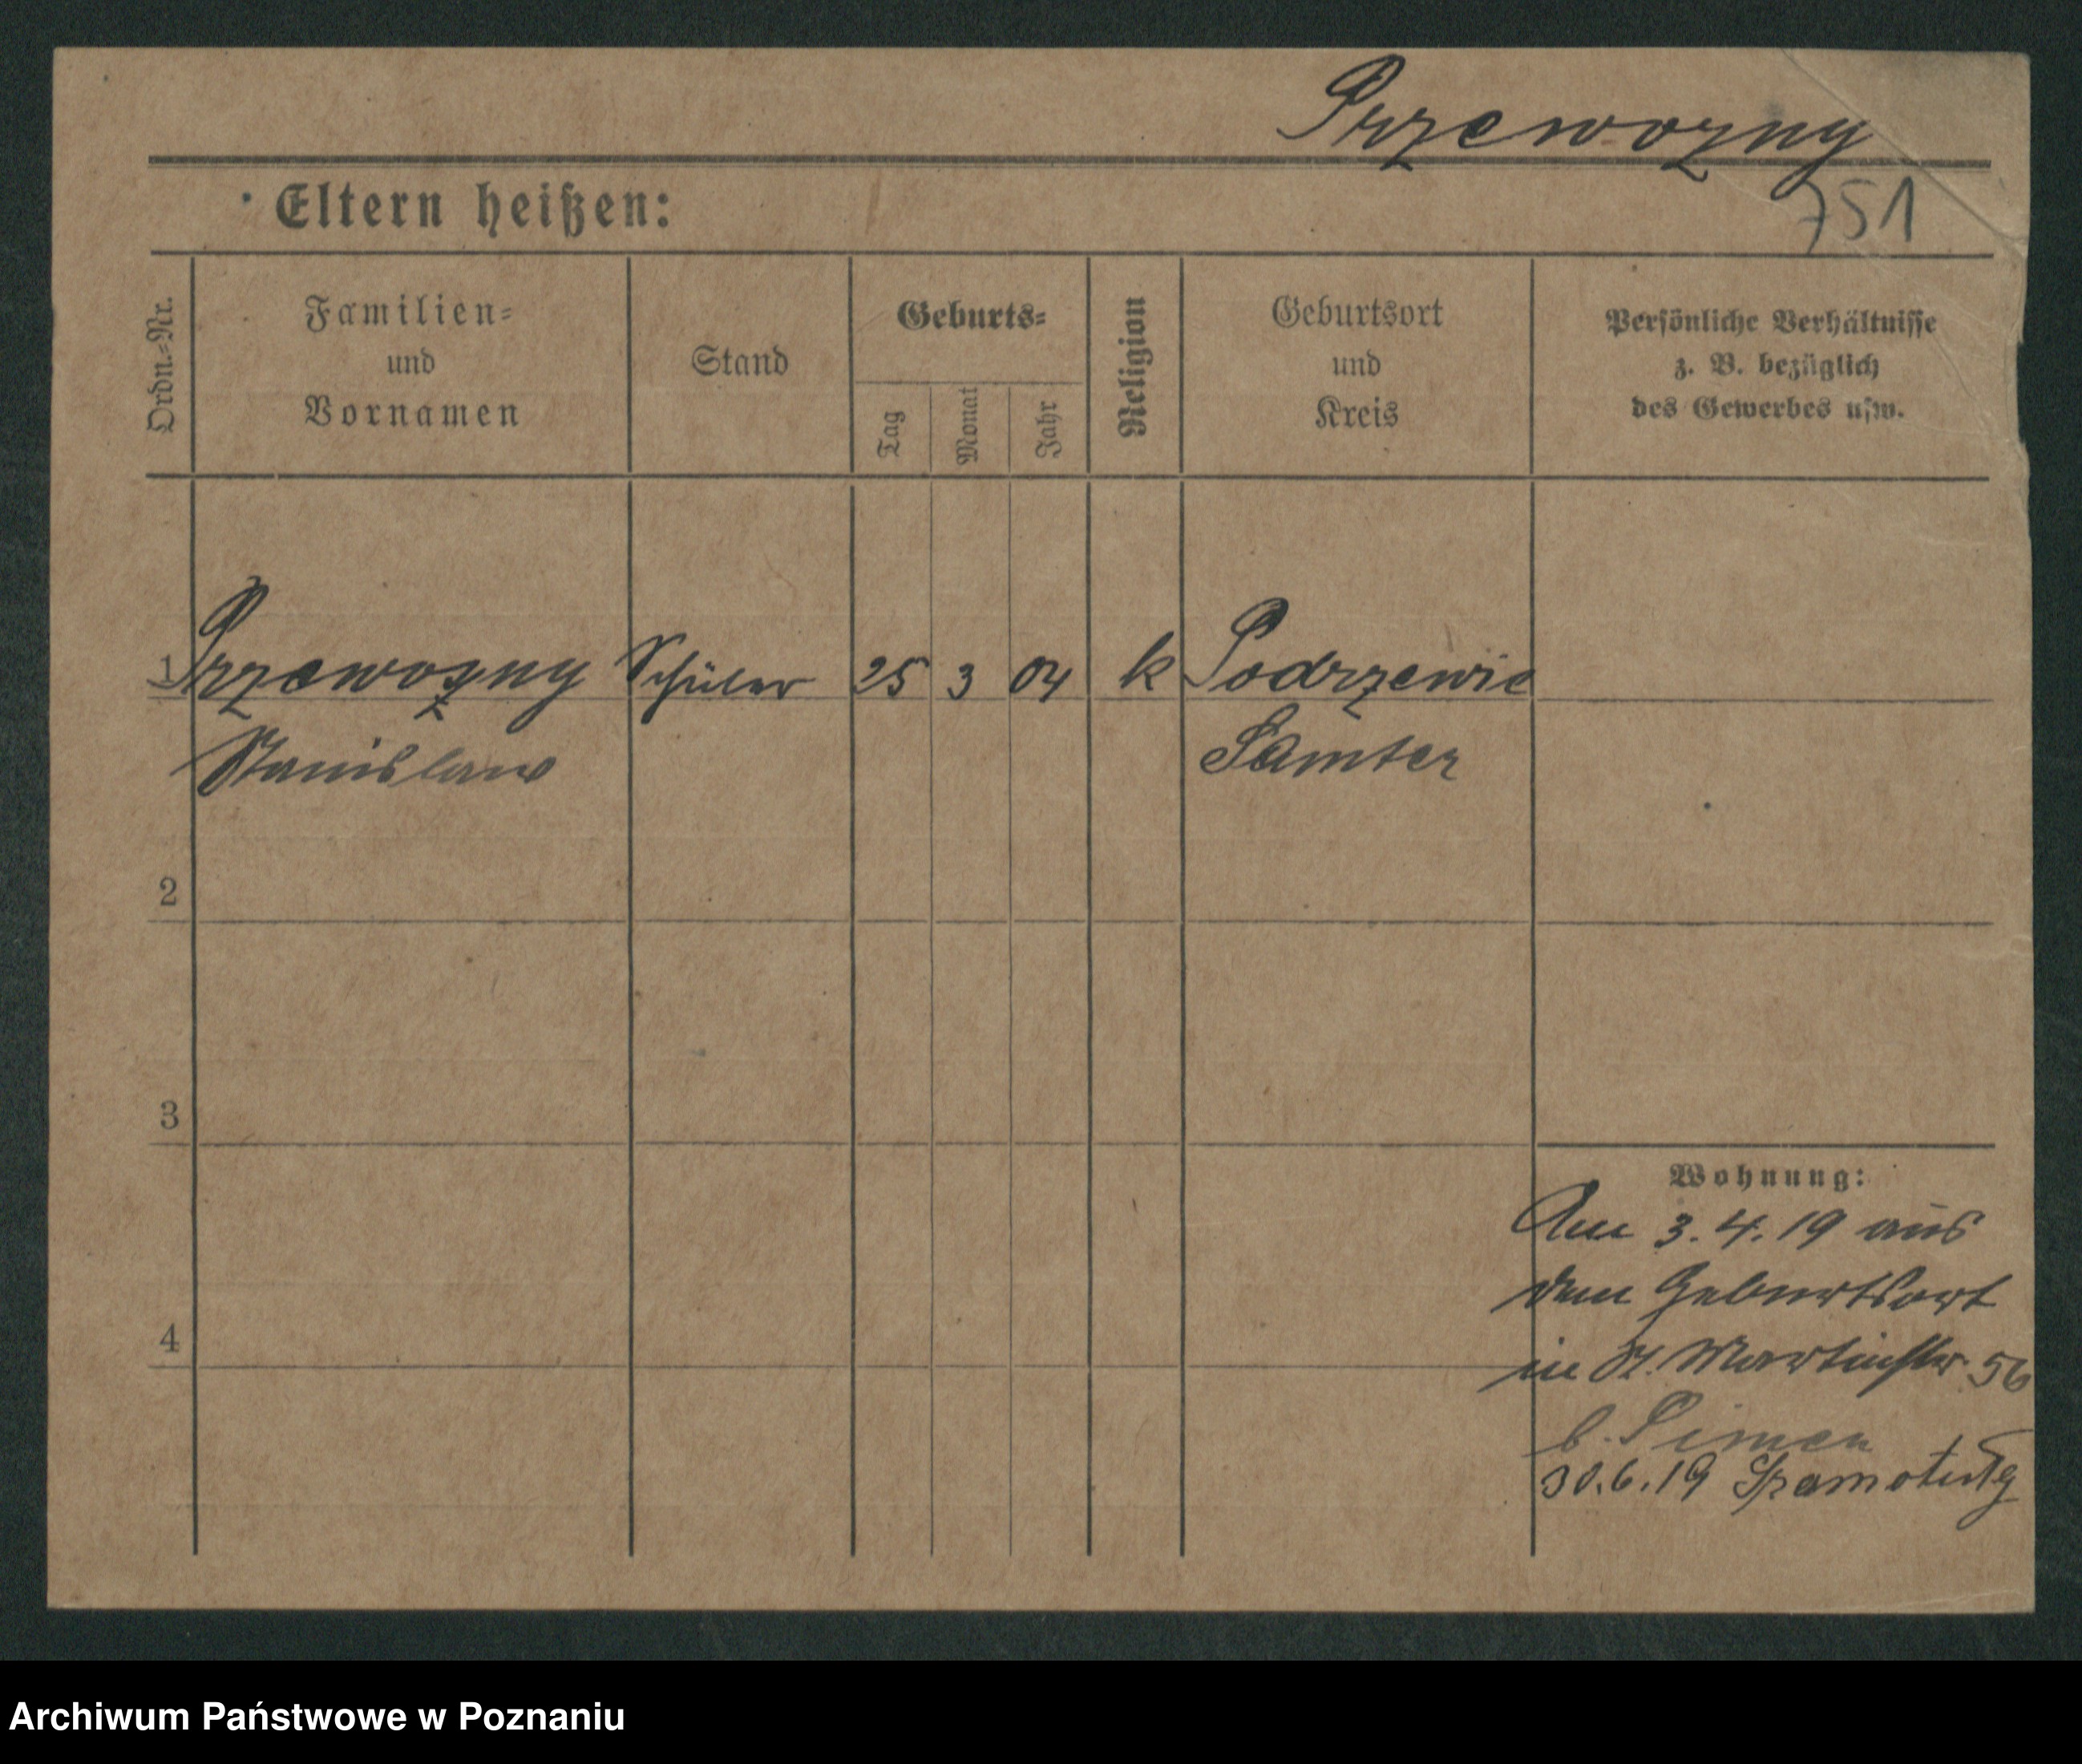 Przewozny
Eltern heißen:
751
Ordn.-Nr.
Familien-
und
Vornamen
Stand
Geburts-
Tag
Monat
Jahr
Religion
Geburtsort
und
Kreis
Persönliche Verhältnisse
z. B. bezüglich
des Gewerbes usw.
1 Przewozny Schüler 25 3 04 k Podrzewie
Stanislaw Samter
2
3
4
Wohnung:
Am 3.4.19 aus
dem Geburtsort
in St. Martinstr. 56
b.
30.6.19
Archiwum Państwowe w Poznaniu